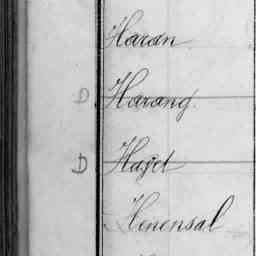 Haran
D Harang
D Hayet
Henensal